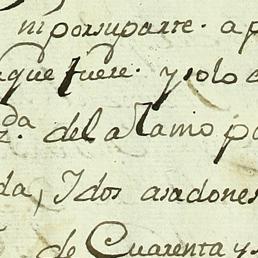 ni por su parte. a p
aque fuere. y solo c
da del alamo po
da, I dos asadones
de Cuarenta y s